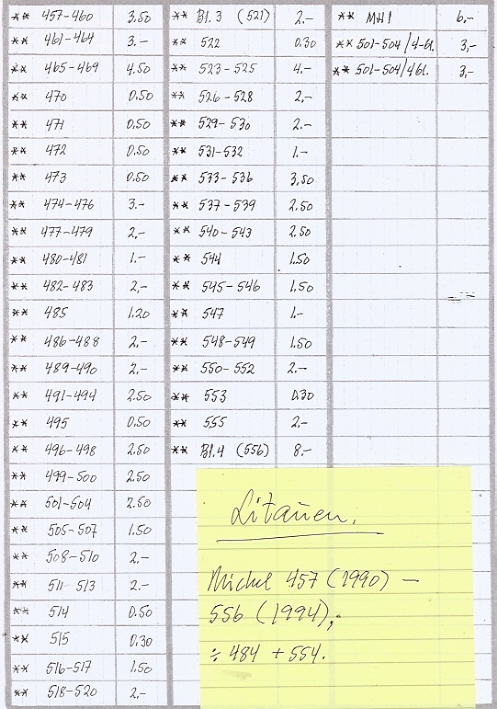 ** 457-460 3.50
** 461-464 3.-
** 465-469 4.50
** 470 0.50
** 471 0.50
** 472 0.50
** 473 0.50
** 474-476 3.-
** 477-479 2.-
** 480-481 1.-
** 482-483 2.-
** 485 1.20
** 486-488 2.-
** 489-490 2.-
** 491-494 2.50
** 495 0.50
** 496-498 2.50
** 499-500 2.50
** 501-504 2.50
** 505-507 1.50
** 508-510 2.-
** 511-513 2.-
** 514 0.50
** 515 0.30
** 516-517 1.50
** 518-520 2.-
** Bl.3 (521) 2.-
** 522 0.30
** 523-525 4.-
** 526-528 2.-
** 529-530 2.-
** 531-532 1.-
** 533-536 3.50
** 537-539 2.50
** 540-543 2.50
** 544 1.50
** 545-546 1.50
** 547 1.-
** 548-549 1.50
** 550-552 2.-
** 553 0.30
** 555 2.-
** Bl.4 (556) 8.-
** MH1 6,-
** 501-504/4-bl. 3,-
** 501-504/4bl. 3,-
Litauen.
Michel 457 (1990) -
556 (1994),
÷ 484 + 554.